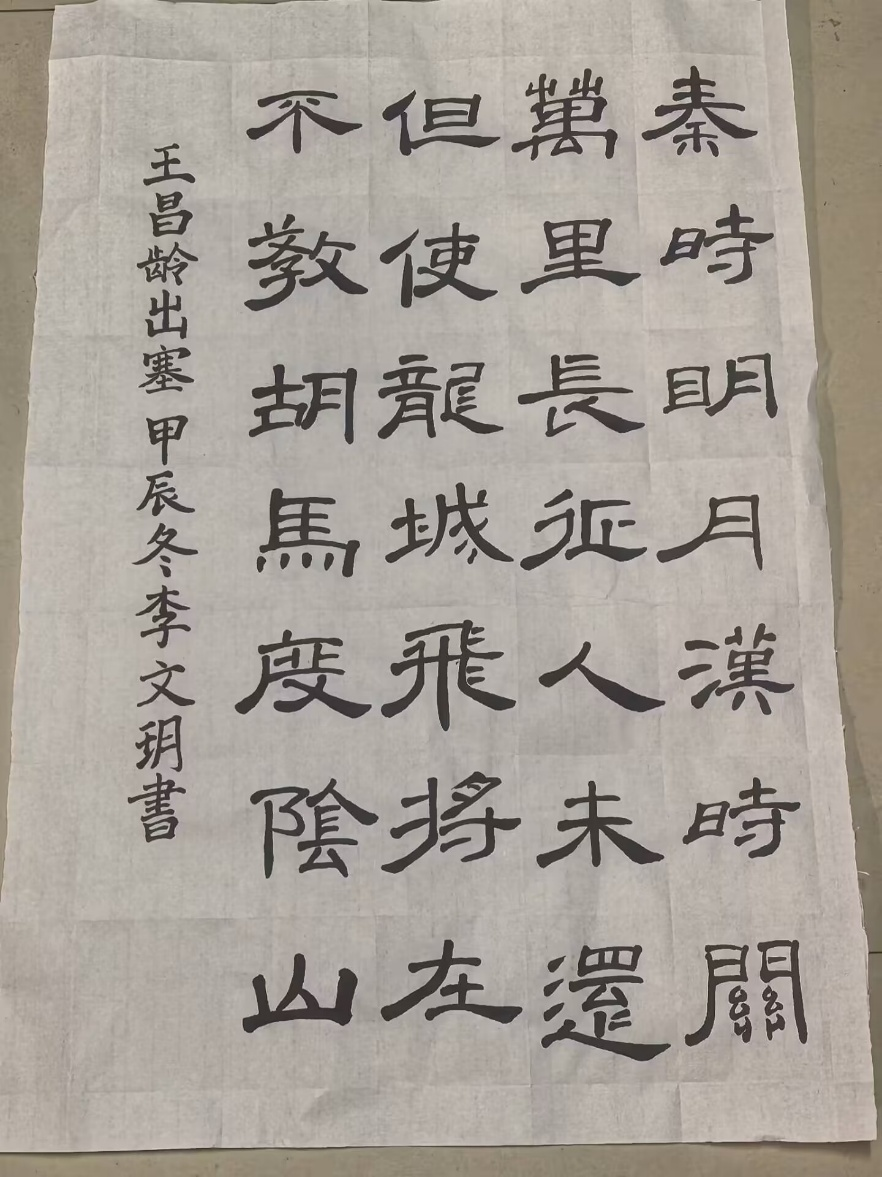 秦時明月漢時關
萬里長征人未還
但使龍城飛將在
不教胡馬度陰山
王昌龄出塞 甲辰冬李文玥書